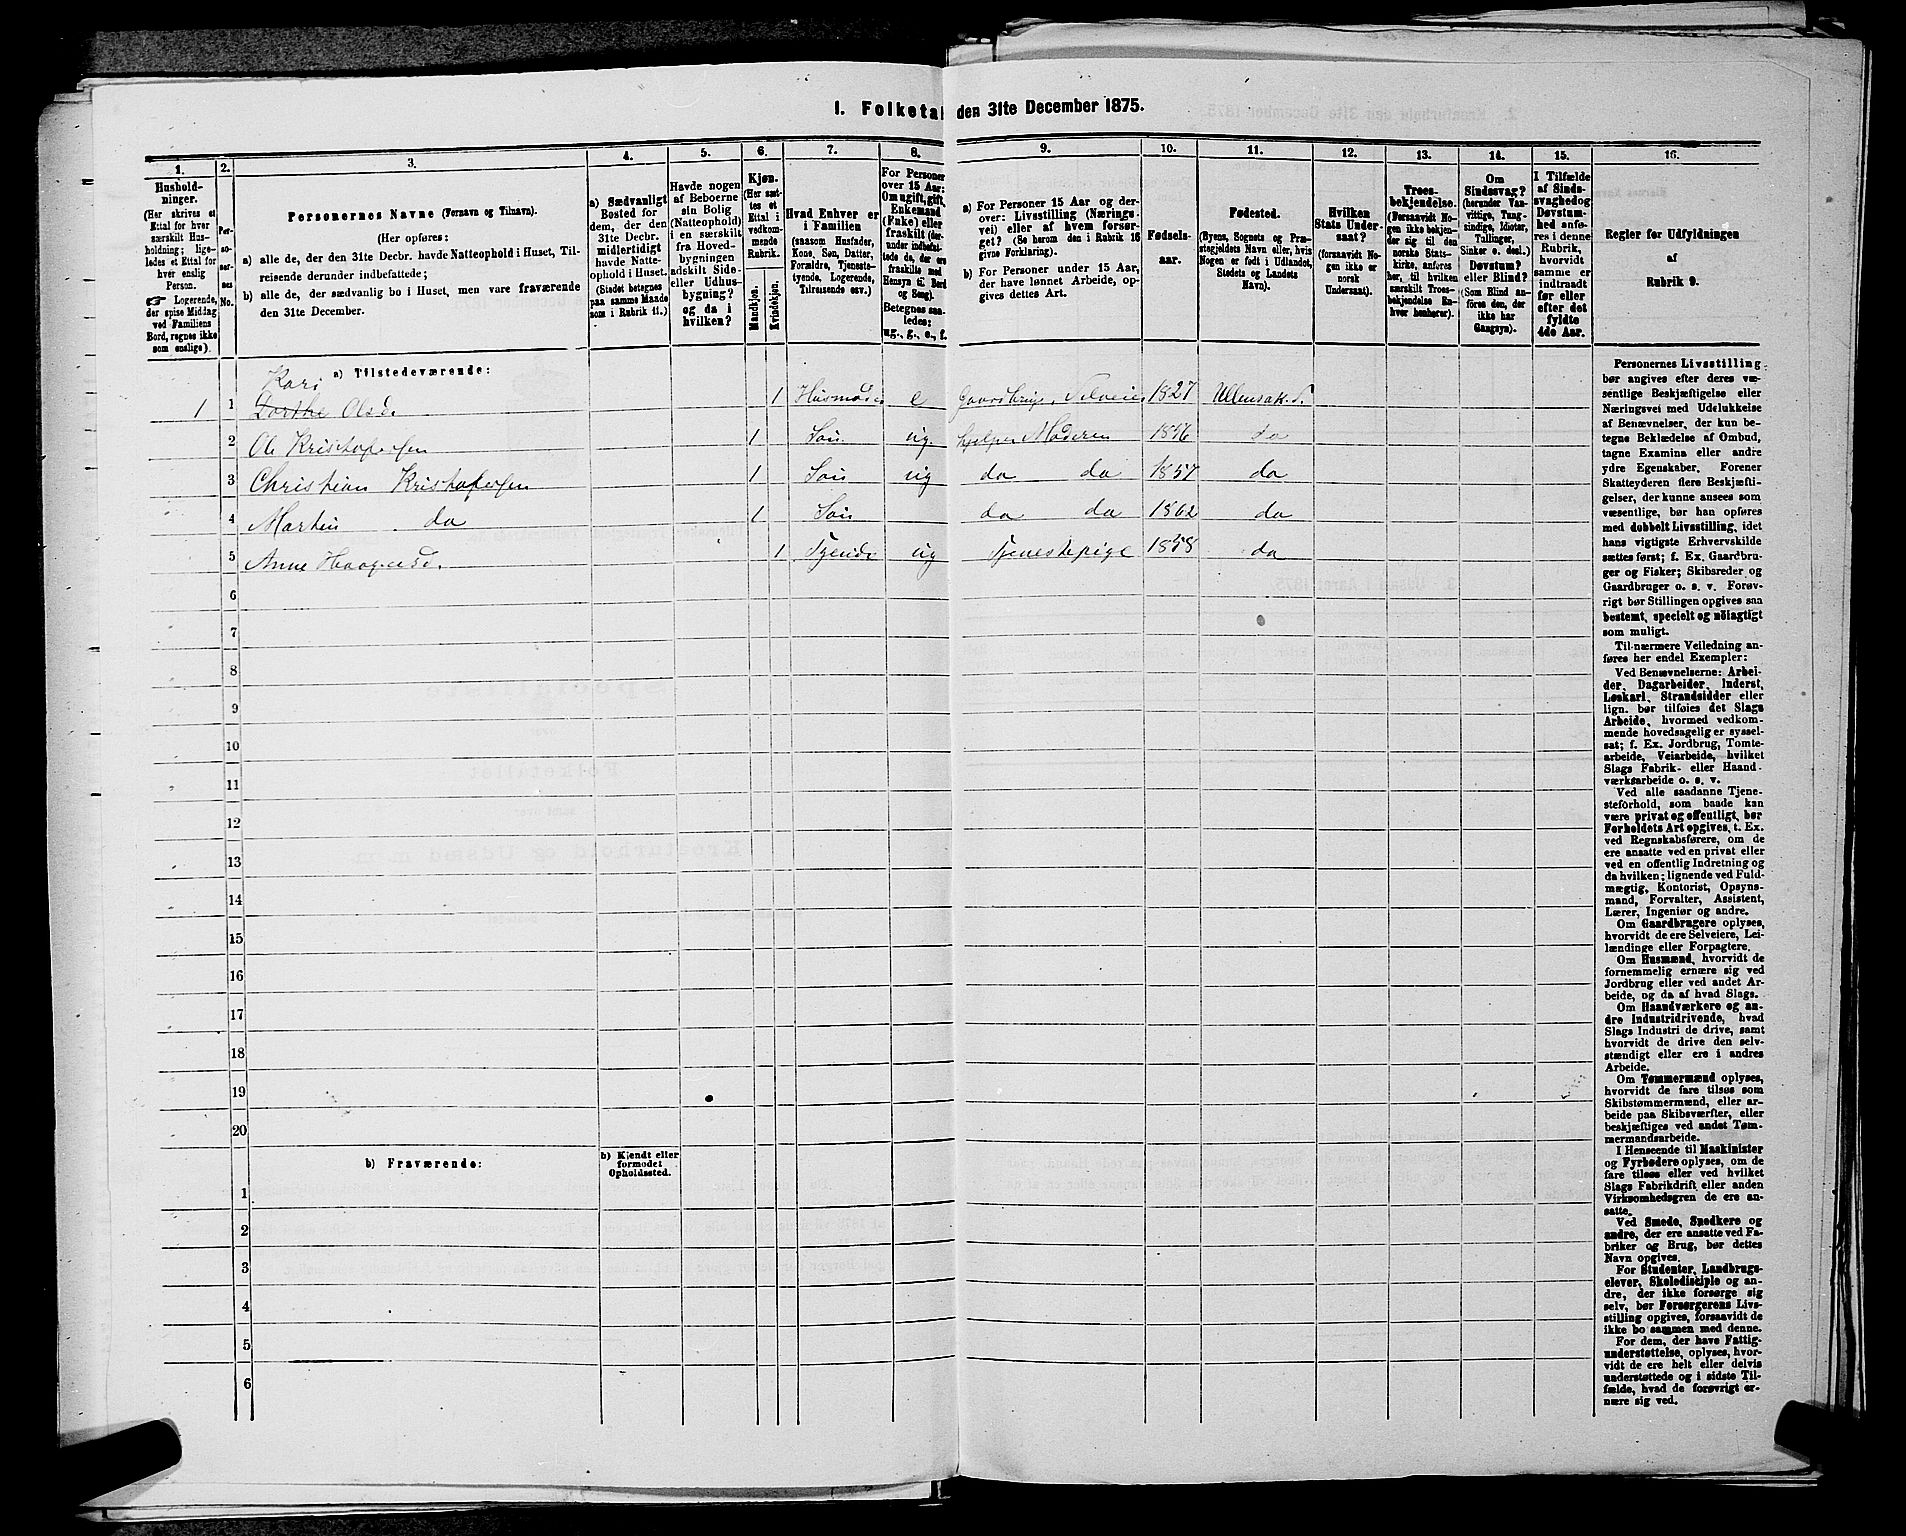 1. Folketal den 31te December 1875.
1. 2. 3. 4. 5. 6. 7. 8. 9. 10. 11. 12. 13. 14. 15. 16.
Hushold-
ninger.
(Her skrives et
Ettal for hver
særskilt Hus-
holdning; lige-
ledes et Ettal for
hver enslig
Person.
☞ Logerende,
der spise Middag
ved Familiens
Bord, regnes ikke
som enslige).
Per-
so-
ner-
nes
No.
Personernes Navne (Fornavn og Tilnavn).
(Her opføres:
a) alle de, der den 31te Decbr. havde Natteophold i Huset, Til-
reisende derunder indbefattede;
b) alle de, der sædvanlig bo i Huset, men vare fraværende
den 31te December.
a) Sædvanligt
Bosted for
dem, der den
31te Decbr.
midlertidigt
havde Natte-
ophold i Huset.
(Stedet betegnes
paa samme Maade
som i Rubrik 11.)
Havde nogen
af Beboerne
sin Bolig
(Natteophold)
i en særskilt
fra Hoved-
bygningen
adskilt Side-
eller Udhus-
bygning?
og da i
hvilken?
Kjøn.
(Her sæt-
tes et
Ettal i
vedkom-
mende
Rubrik.
Mandkjøn.
Kvindekjøn.
Hvad Enhver er
i Familien
(saasom Husfader,
Kone, Søn, Datter,
Forældre, Tjeneste-
tyende, Logerende,
Tilreisende osv.)
For Personer
over 15 Aar:
Om ugift, gift,
Enkemand
(Enke) eller
fraskilt (der-
under indbefat-
tede de, der ere
fraskilte med
Hensyn til Bord
og Seng).
Betegnes saa-
ledes:
ug., g., e., f.
a) For Personer 15 Aar og der-
over: Livsstilling (Nærings-
vei) eller af hvem forsør-
get? (Se herom den i Rubrik 16
givne Forklaring).
b) For Personer under 15 Aar,
der have lønnet Arbeide, op-
gives dettes Art.
Fødsels-
aar.
Fødested.
(Byens, Sognets og Præ-
stegjeldets Navn eller, hvis
Nogen er født i Udlandet,
Stedets og Landets
Navn).
Hvilken
Stats Under-
saat?
(forsaavidt No-
gen ikke er
norsk
Undersaat).
Troes-
bekjendelse.
(Forsaavidt No-
gen ikke bekjen-
der sig til den
norske Stats-
kirke, anføres
her, til hvilken
særskilt Troes-
bekjendelse En-
hver henhører).
Om
Sindssvag?
(herunder Van-
vittige, Tung-
sindige, Idioter,
Tullinger,
Sinker o. desl.)
Døvstum?
eller Blind?
(Som Blind an-
føres den, der
ikke har
Gangsyn).
I Tilfælde
af Sinds-
svaghed og
Døvstum-
hed anfø-
res i denne
Rubrik,
hvorvidt
samme er
indtraadt
før eller
efter det
fyldte
4de Aar.
Regler for Udfyldningen
af
Rubrik 9.
a) Tilstedeværende:
Kari
1 1 Dorthe Olsd. 1 Husmoder e Gaardbrug. Selveier 1827 Ullensak. P.
2 Ole Kristofersen 1 Søn ug. hjelper Moderen 1856 do
3 Christian Kristofersen 1 Søn ug do do 1857 do
4 Martin do 1 Søn do do 1862 do
5 Anne Haagensd. 1 Tyende ug Tjenestepige 1858 do
6
7
8
9
10
11
12
13
14
15
16
17
18
19
20
b) Fraværende:
b) Kjendt eller
formodet
Opholdssted.
1
2
3
4
5
6
Personernes Livsstilling
bør angives efter deres væ-
sentlige Beskjæftigelse eller
Næringsvei med Udelukkelse
af Benævnelser, der kun be-
tegne Beklædelse af Ombud,
tagne Examina eller andre
ydre Egenskaber. Forener
Skatteyderen flere Beskjæfti-
gelser, der kunne ansees som
væsentlige, bør han opføres
med dobbelt Livsstilling, idet
hans vigtigste Erhvervskilde
sættes først; f. Ex. Gaardbru-
ger og Fisker; Skibsreder og
Gaardbruger o. s. v. Forøv-
rigt bør Stillingen opgives saa
bestemt, specielt og nøiagtigt
som muligt.
Til nærmere Veiledning an-
føres her endel Exempler:
Ved Benævnelserne: Arbei-
der, Dagarbeider, Inderst,
Løskarl, Strandsidder eller
lign. bør tilføies det Slags
Arbeide, hvormed vedkom-
mende hovedsagelig er syssel-
sat; f. Ex. Jordbrug, Tomte-
arbeide, Veiarbeide, hvilket
Slags Fabrik- eller Haand-
værksarbeide o. s. v.
Ved alle saadanne Tjene-
steforhold, som baade kan
være privat og offentligt, bør
Forholdets Art opgives, t. Ex.
ved Regnskabsførere, om de
ere ansatte ved en privat eller
ved en offentlig Indretning og
da hvilken; lignende ved Fuld-
mægtig, Kontorist, Opsyns-
mand, Forvalter, Assistent,
Lærer, Ingeniør og andre.
Om Gaardbrugere oplyses,
hvorvidt de ere Selveiere, Lei-
lændinge eller Forpagtere.
Om Husmænd, hvorvidt de
fornemmelig ernære sig ved
Jordbrug eller ved andet Ar-
beide, og da af hvad Slags.
Om Haandværkere og an-
dre Industridrivende, hvad
Slags Industri de drive, samt
hvorvidt de drive den selv-
stændigt eller ere i andres
Arbeide.
Om Tømmermænd oplyses,
hvorvidt de fare tilsøs som
Skibstømmermænd, eller ar-
beide paa Skibsværfter, eller
beskjæftiges ved andet Tøm-
mermandsarbeide.
I Henseende til Maskinister
og Fyrbødere oplyses, om de
fare tilsøs eller ved hvilket
Slags Fabrikdrift eller anden
Virksomhedsgren de ere an-
satte.
Ved Smede, Snedkere og
andre, der ere ansatte ved Fa-
briker og Brug, bør dettes
Navn opgives.
For Studenter, Landbrugs-
elever, Skoledisciple og an-
dre, der ikke forsørge sig
selv, bør Forsørgerens Livs-
stilling opgives, forsaavidt de
ikke bo sammen med denne.
For dem, der have Fattig-
understøttelse, oplyses, hvor-
vidt de ere helt eller delvis
understøttede og i sidste Til-
fælde, hvad de forøvrigt er-
nære sig ved.